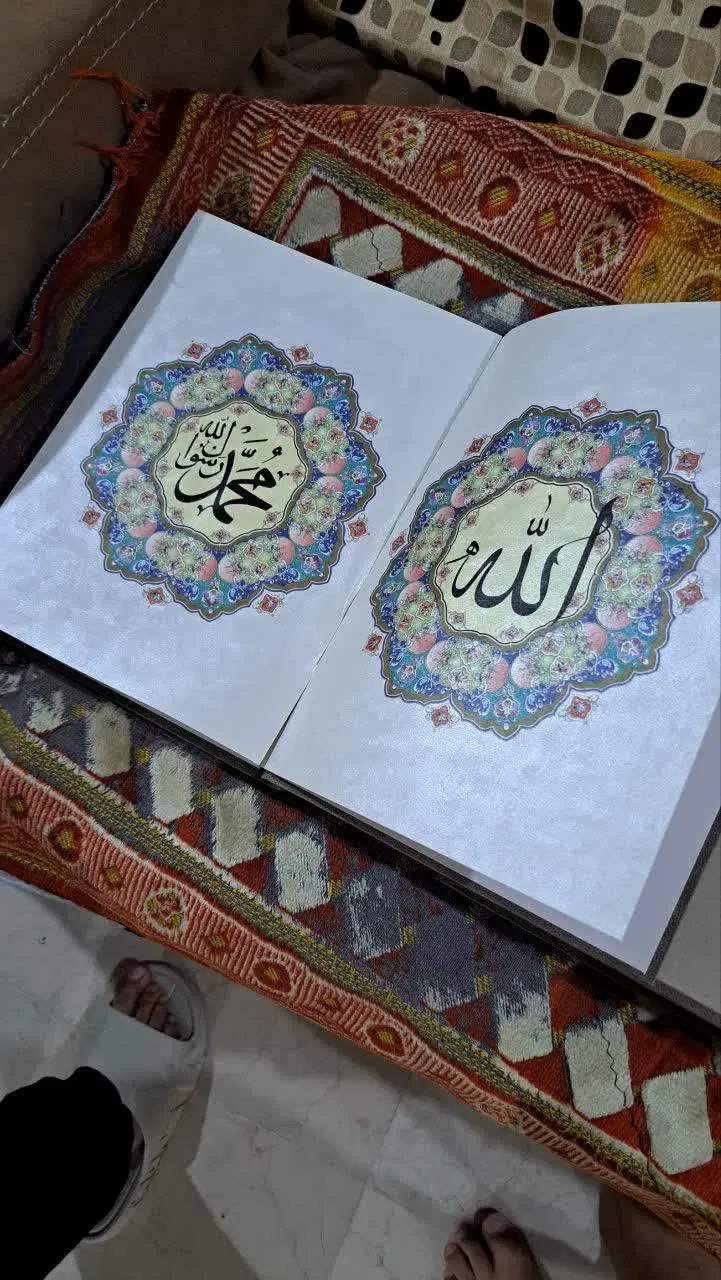 الله
محمد رسول الله